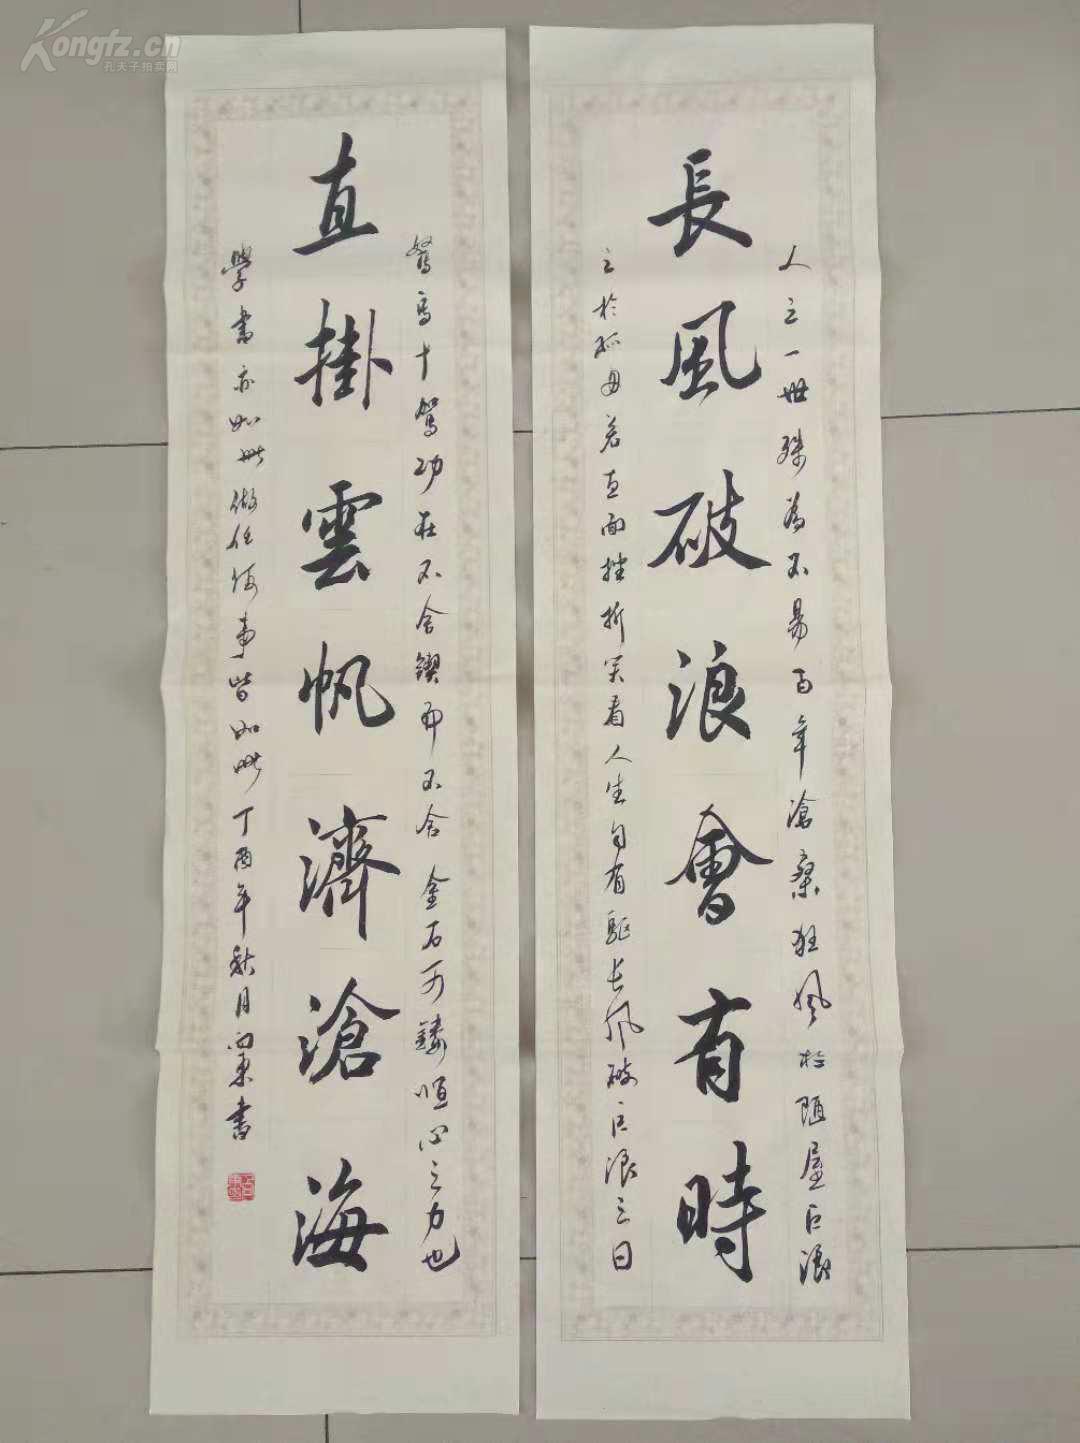 Kongfz.cn
孔夫子拍卖网
人立一世殊為不易百年滄桑狂風於陋屋巨浪
長風破浪會有時
之於孤舟若直面挫折笑看人生自有駆长风破巨浪之日
駑馬十駕功在不舍鍥而不舍金石可鏤恒心之力也
直掛雲帆濟滄海
學書亦如此做任何事皆如此丁酉年秋月
書